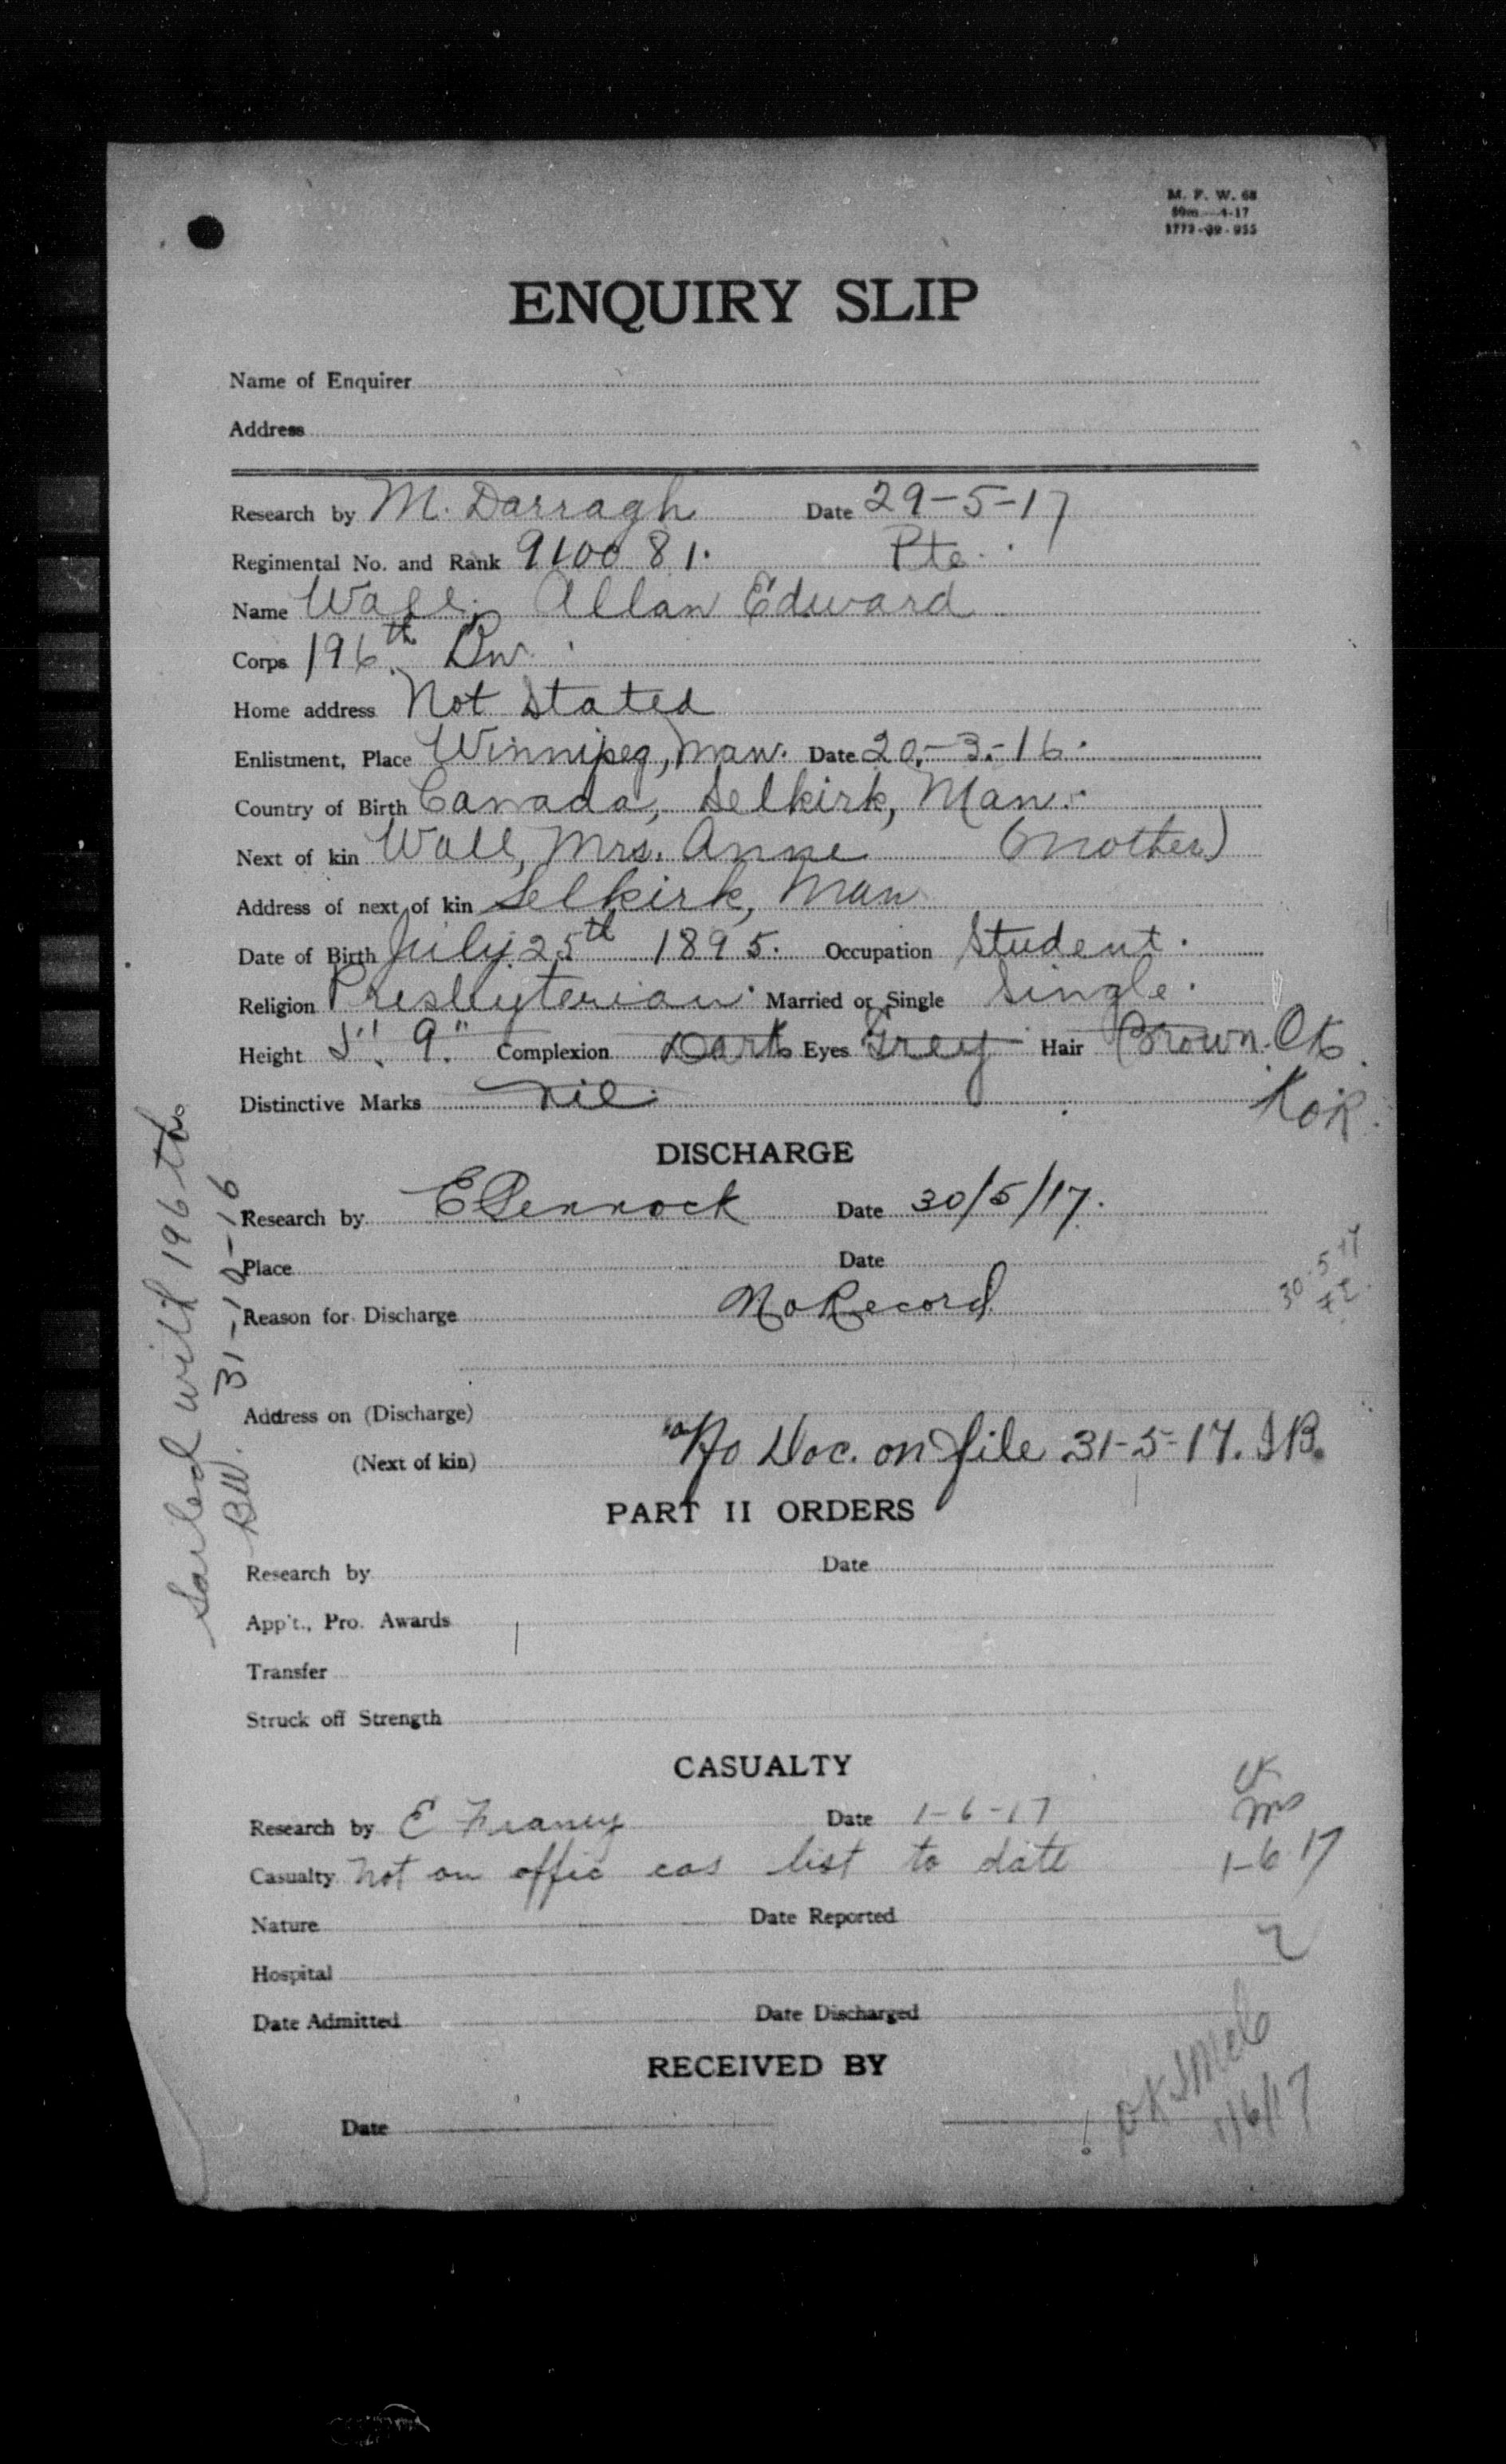 M. F. W. 68
50m.—4-17
1772-39-935
ENQUIRY SLIP
Name of Enquirer
Address
Research by M. Darragh Date 29-5-17
Regimental No. and Rank 910081. Pte.
Name Wall, Allan Edward
Corps 196th Bn.
Home address Not Stated
Enlistment, Place Winnipeg, Man. Date 20-3-16.
Country of Birth Canada, Selkirk, Man.
Next of kin Wall, Mrs. Anne (Mother)
Address of next of kin Selkirk, Man
Date of Birth July 25th 1895. Occupation Student.
Religion Presbyterian. Married or Single Single.
Height 5' 9" Complexion Dark Eyes Grey Hair Brown. Ok
Distinctive Marks Nil. KOR.
DISCHARGE
Research by E Pennock Date 30/5/17.
Place Date
Reason for Discharge No Record
30-5-17
Address on (Discharge)
(Next of kin) No Doc. on file 31-5-17. IB.
Sailed with 196th
BW. 31-10-16
PART II ORDERS
Research by Date
App't., Pro. Awards
Transfer
Struck off Strength
CASUALTY
Research by E Date 1-6-17
Casualty Not on offic cas list to date 1-6 17
Nature Date Reported
Hospital
Date Admitted Date Discharged
RECEIVED BY
Date
OK
1/6/17